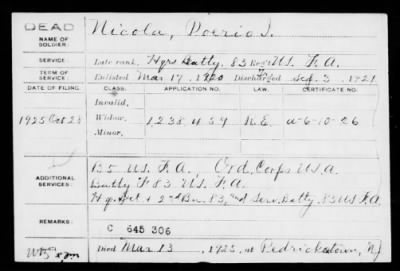 DEAD
NAME OF SOLDIER:
Nicola, Poerio I.
SERVICE:
Late rank, Hqrs Batty. 83 Reg't U.S. F.A.
TERM OF SERVICE:
Enlisted Mar 17, 1920 Discharged Sep. 3, 1921
DATE OF FILING. CLASS. APPLICATION NO. LAW. CERTIFICATE NO.
Invalid,
1925 Oct 28 Widow, 1238459 N.E. a-6-10-26
Minor,
ADDITIONAL SERVICES:
B 5 U.S. F.A., Ord. Corps U.S.A.
Batty F 83 U.S. F.A.
Hq. Det & 2nd Bn. 83, Serv. Batty. 83 U.S. F.A.
REMARKS:
C 645 306
Died Mar 13, 1925, at Pedricktown, NJ